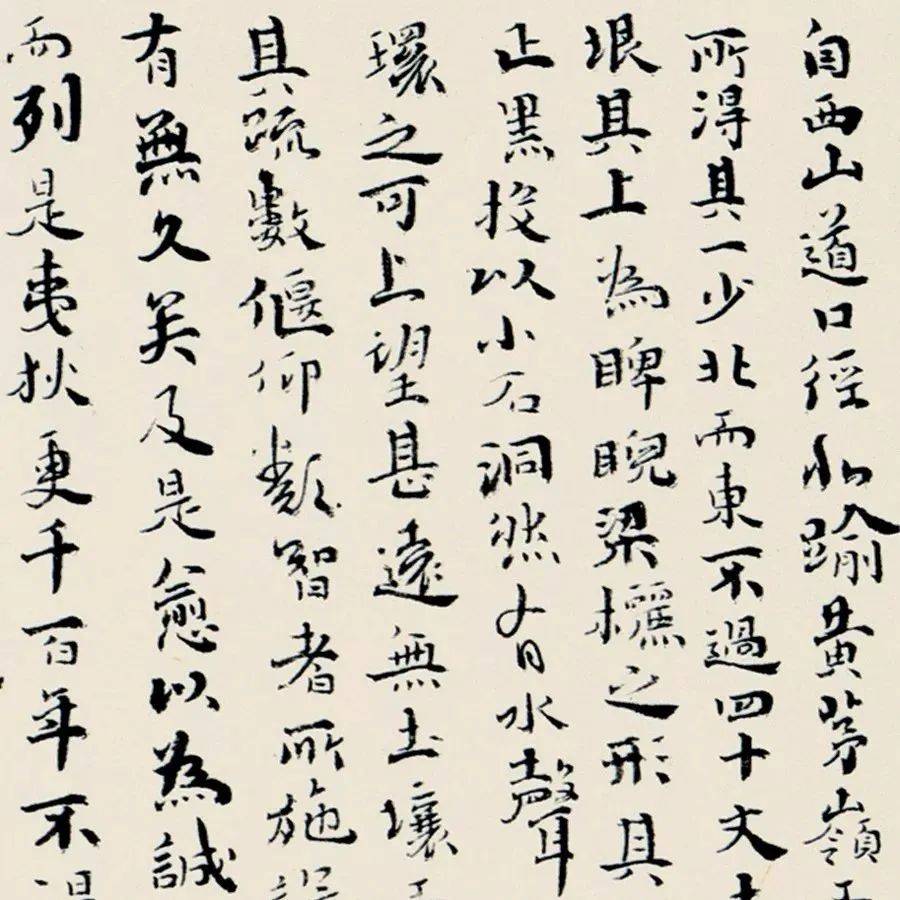 自西山道口徑北踰黄茅嶺
所得具一少北而東不過四十丈土
垠具上為睥睨梁欐之形具
正黑投以小石洞然有水聲
環之可上望甚遠無土壤
具疏數偃仰類智者所施設
有無久矣及是愈以為誠
而列是夷狄更千百年不得